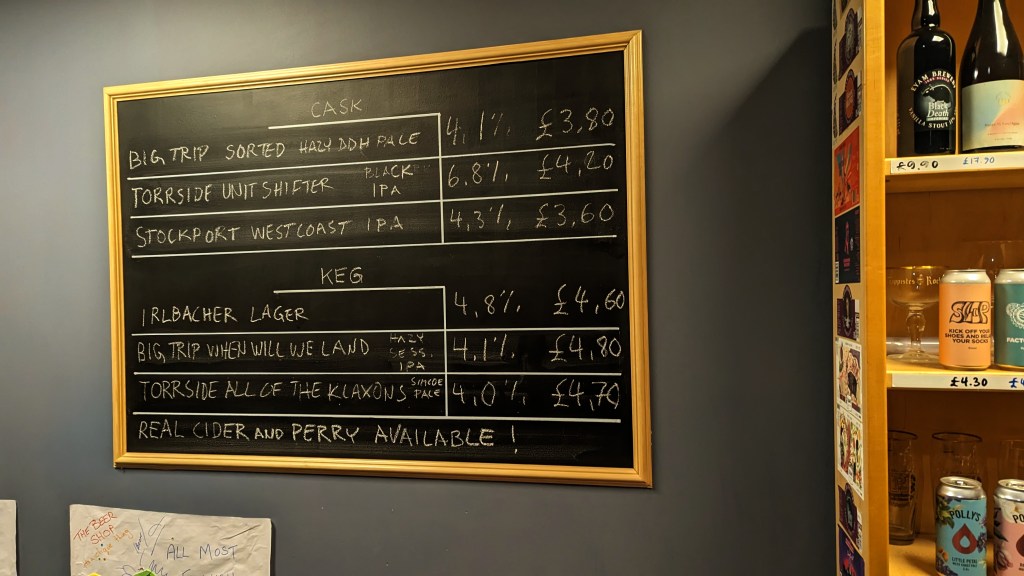 CASK
BIG TRIP SORTED HAZY DDH PALE 4,1% £3,80
TORRSIDE UNIT SHIFTER BLACK IPA 6.8% £4,20
STOCKPORT WEST COAST IPA 4,3% £3,60
KEG
IRLBACHER LAGER 4,8% £4,60
BIG TRIP WHEN WILL WE LAND HAZY SESS. IPA 4,1% £4,80
TORRSIDE ALL OF THE KLAXONS SIMCOE PALE 4,0% £4,70
REAL CIDER AND PERRY AVAILABLE !
THE BEER
SHOP
ALL MOST
Black
Death
£9.90 £17.90
KICK OFF YOUR
SHOES AND RELAX
YOUR SOCKS
FACT
£4.30
POLLY'S
LITTLE PETAL
PO